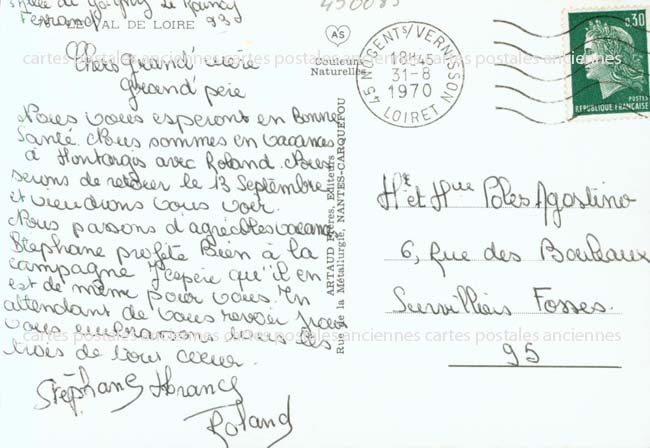 Allée de Gagny le Raincy
93
LE VAL DE LOIRE
450085
AS
Couleurs
Naturelles
Chers Grand' mère
Grand père
Nous vous esperons en Bonne
Santé. Nous sommes en vacances
à Montargis avec Roland. Nous
serons de retour le 13 Septembre
et viendrons vous voir.
Nous passons d'agréables vacances
Stéphane profite Bien à la
campagne J'espère qu'il en
est de même pour vous. En
attendant de vous revoir nous
vous embrassons tous les
trois de tout coeur.
Stéphane
Roland
ARTAUD Frères, Editeurs
Rue de la Métallurgie, NANTES-CARQUEFOU
45 NOGENT S/ VERNISSON
18H45
31-8
1970
LOIRET
0,30
POSTES
REPUBLIQUE FRANÇAISE
Mr et Mme Poles Agostino
6, Rue des Bouleaux
Survilliers Fosses.
95
cartes postales anciennes cartes postales anciennes cartes postales anciennes
cartes postales anciennes cartes postales anciennes cartes postales anciennes